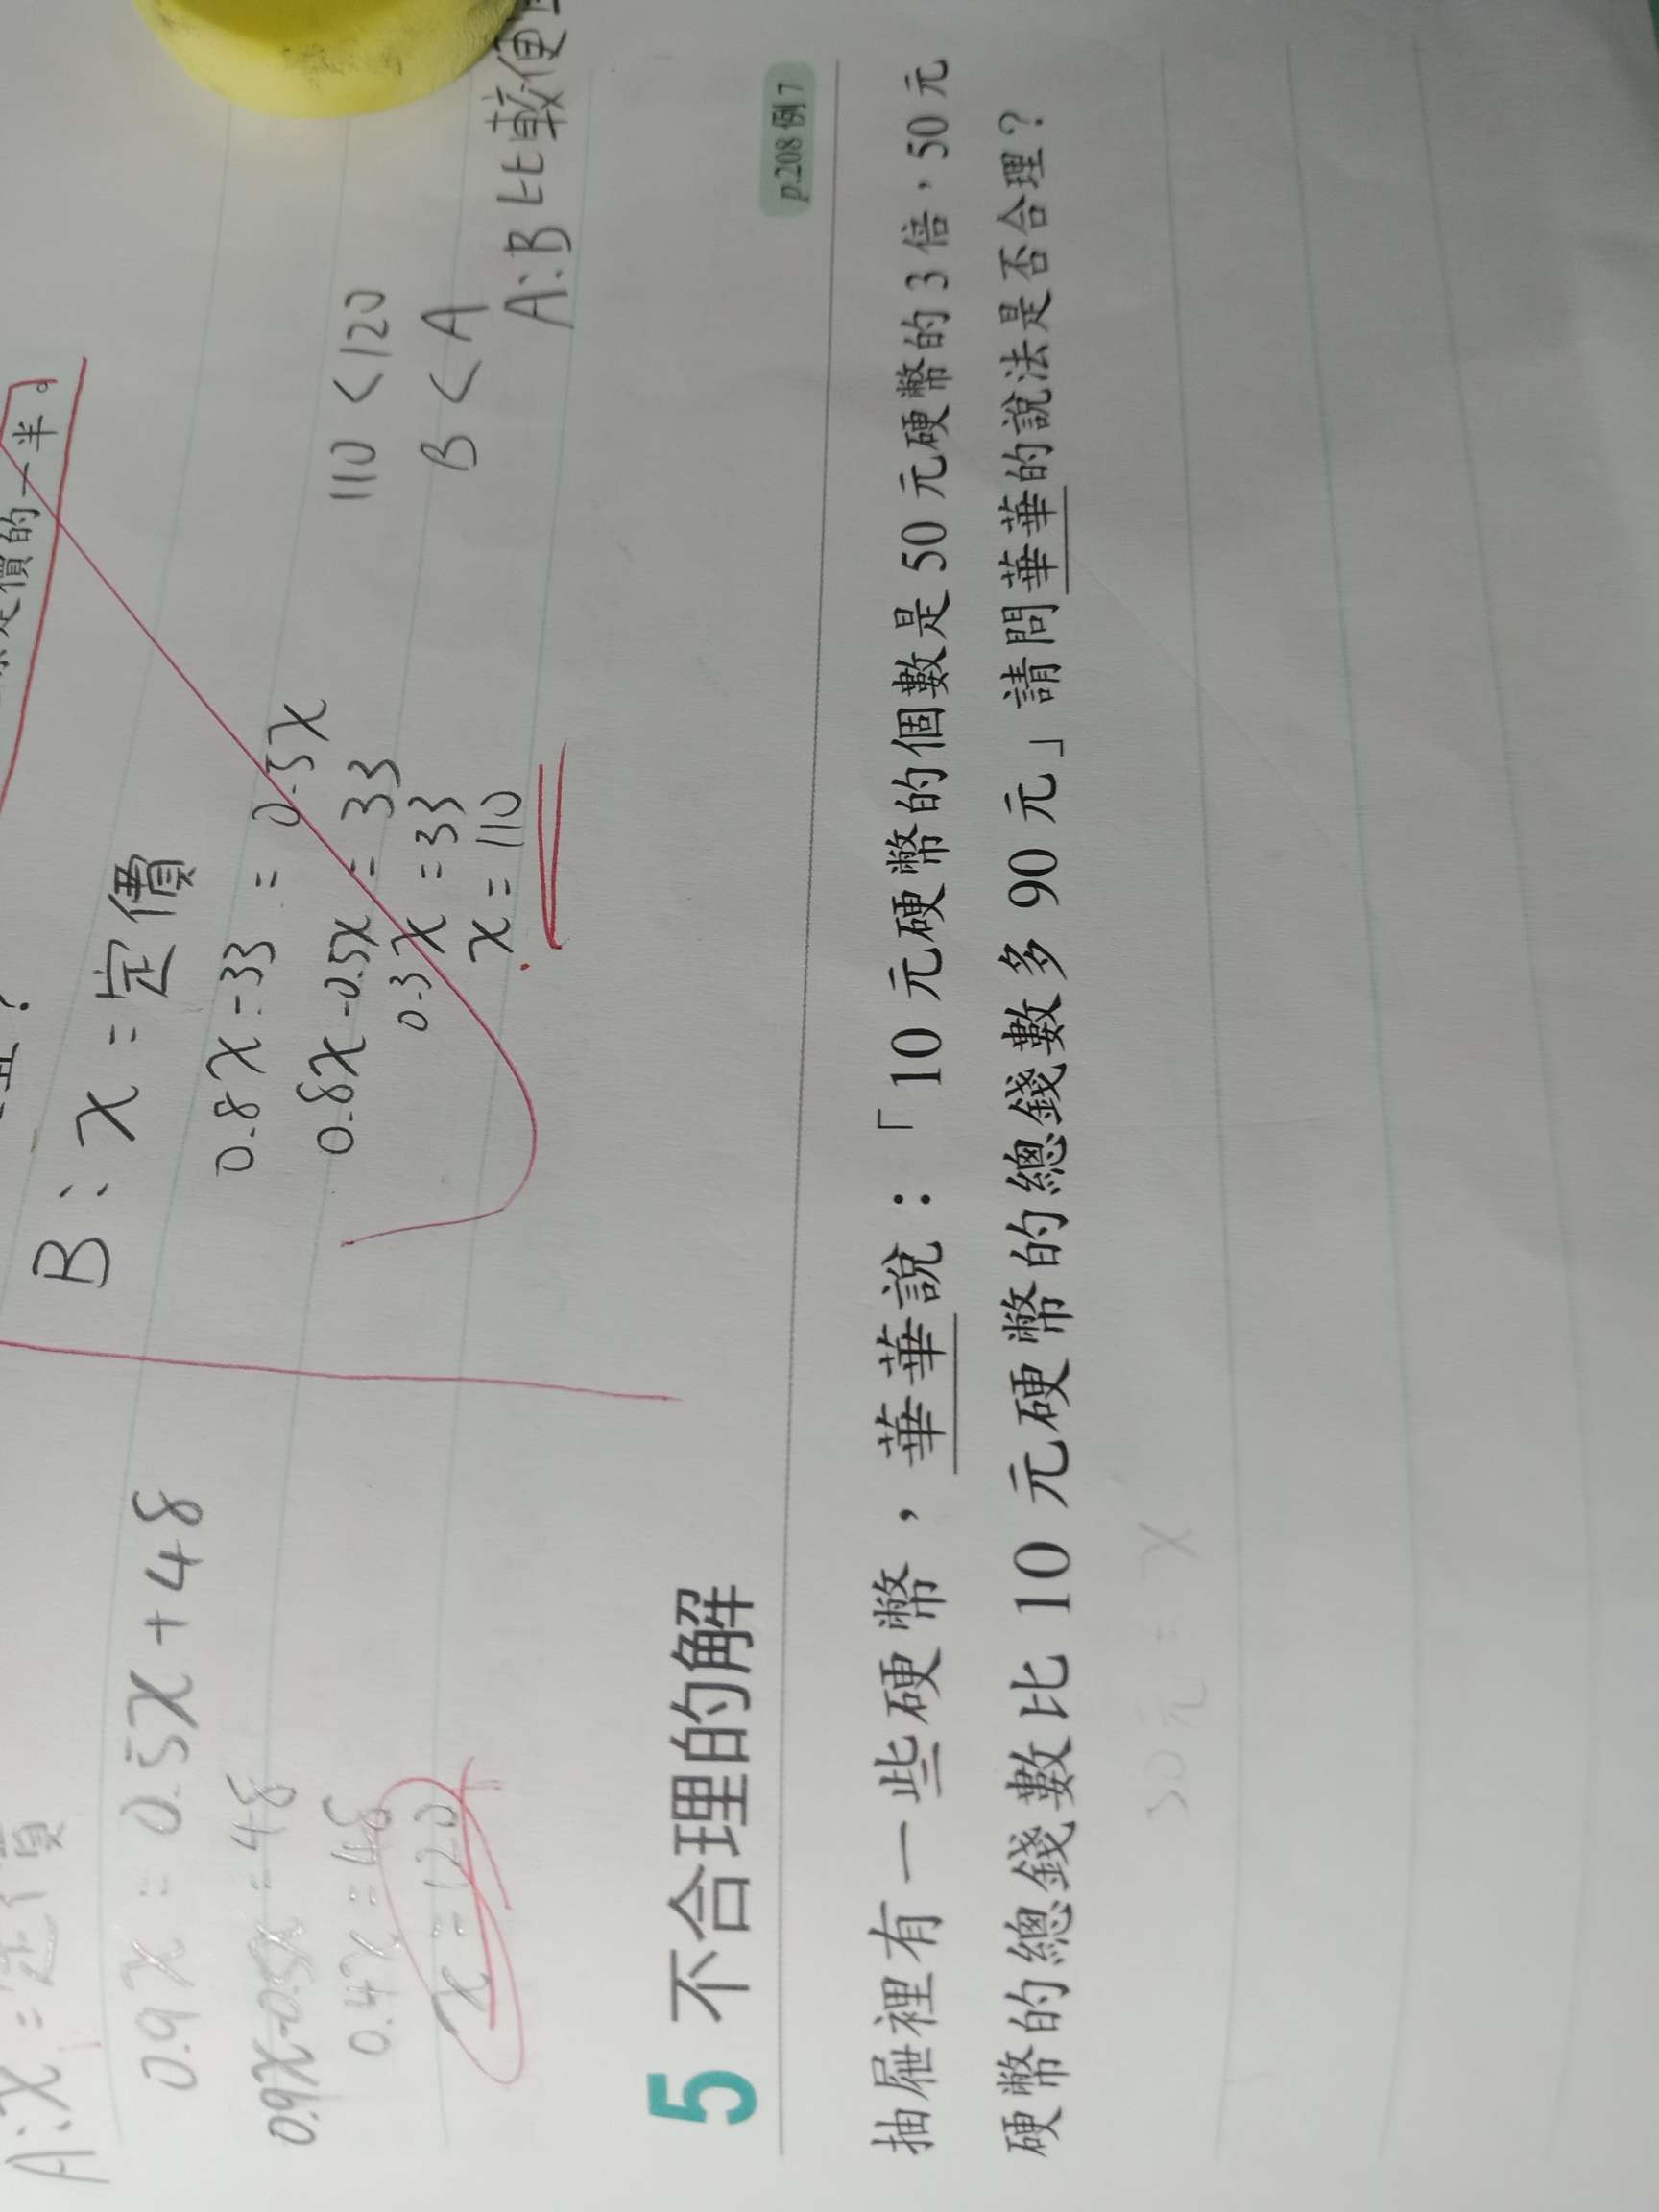 價的一半。
A:x=定價
0.9x=0.5x+48
0.9x-0.5x=48
0.4x=48
x=120
B:x=定價
0.8x-33=0.5x
0.8x-0.5x=33
0.3x=33
x=110
110<120
B<A
A:B比較便
5 不合理的解
p.208 例 7
抽屜裡有一些硬幣,華華說:「10 元硬幣的個數是 50 元硬幣的 3 倍,50 元
硬幣的總錢數比 10 元硬幣的總錢數多 90 元」請問華華的說法是否合理?
50元=x